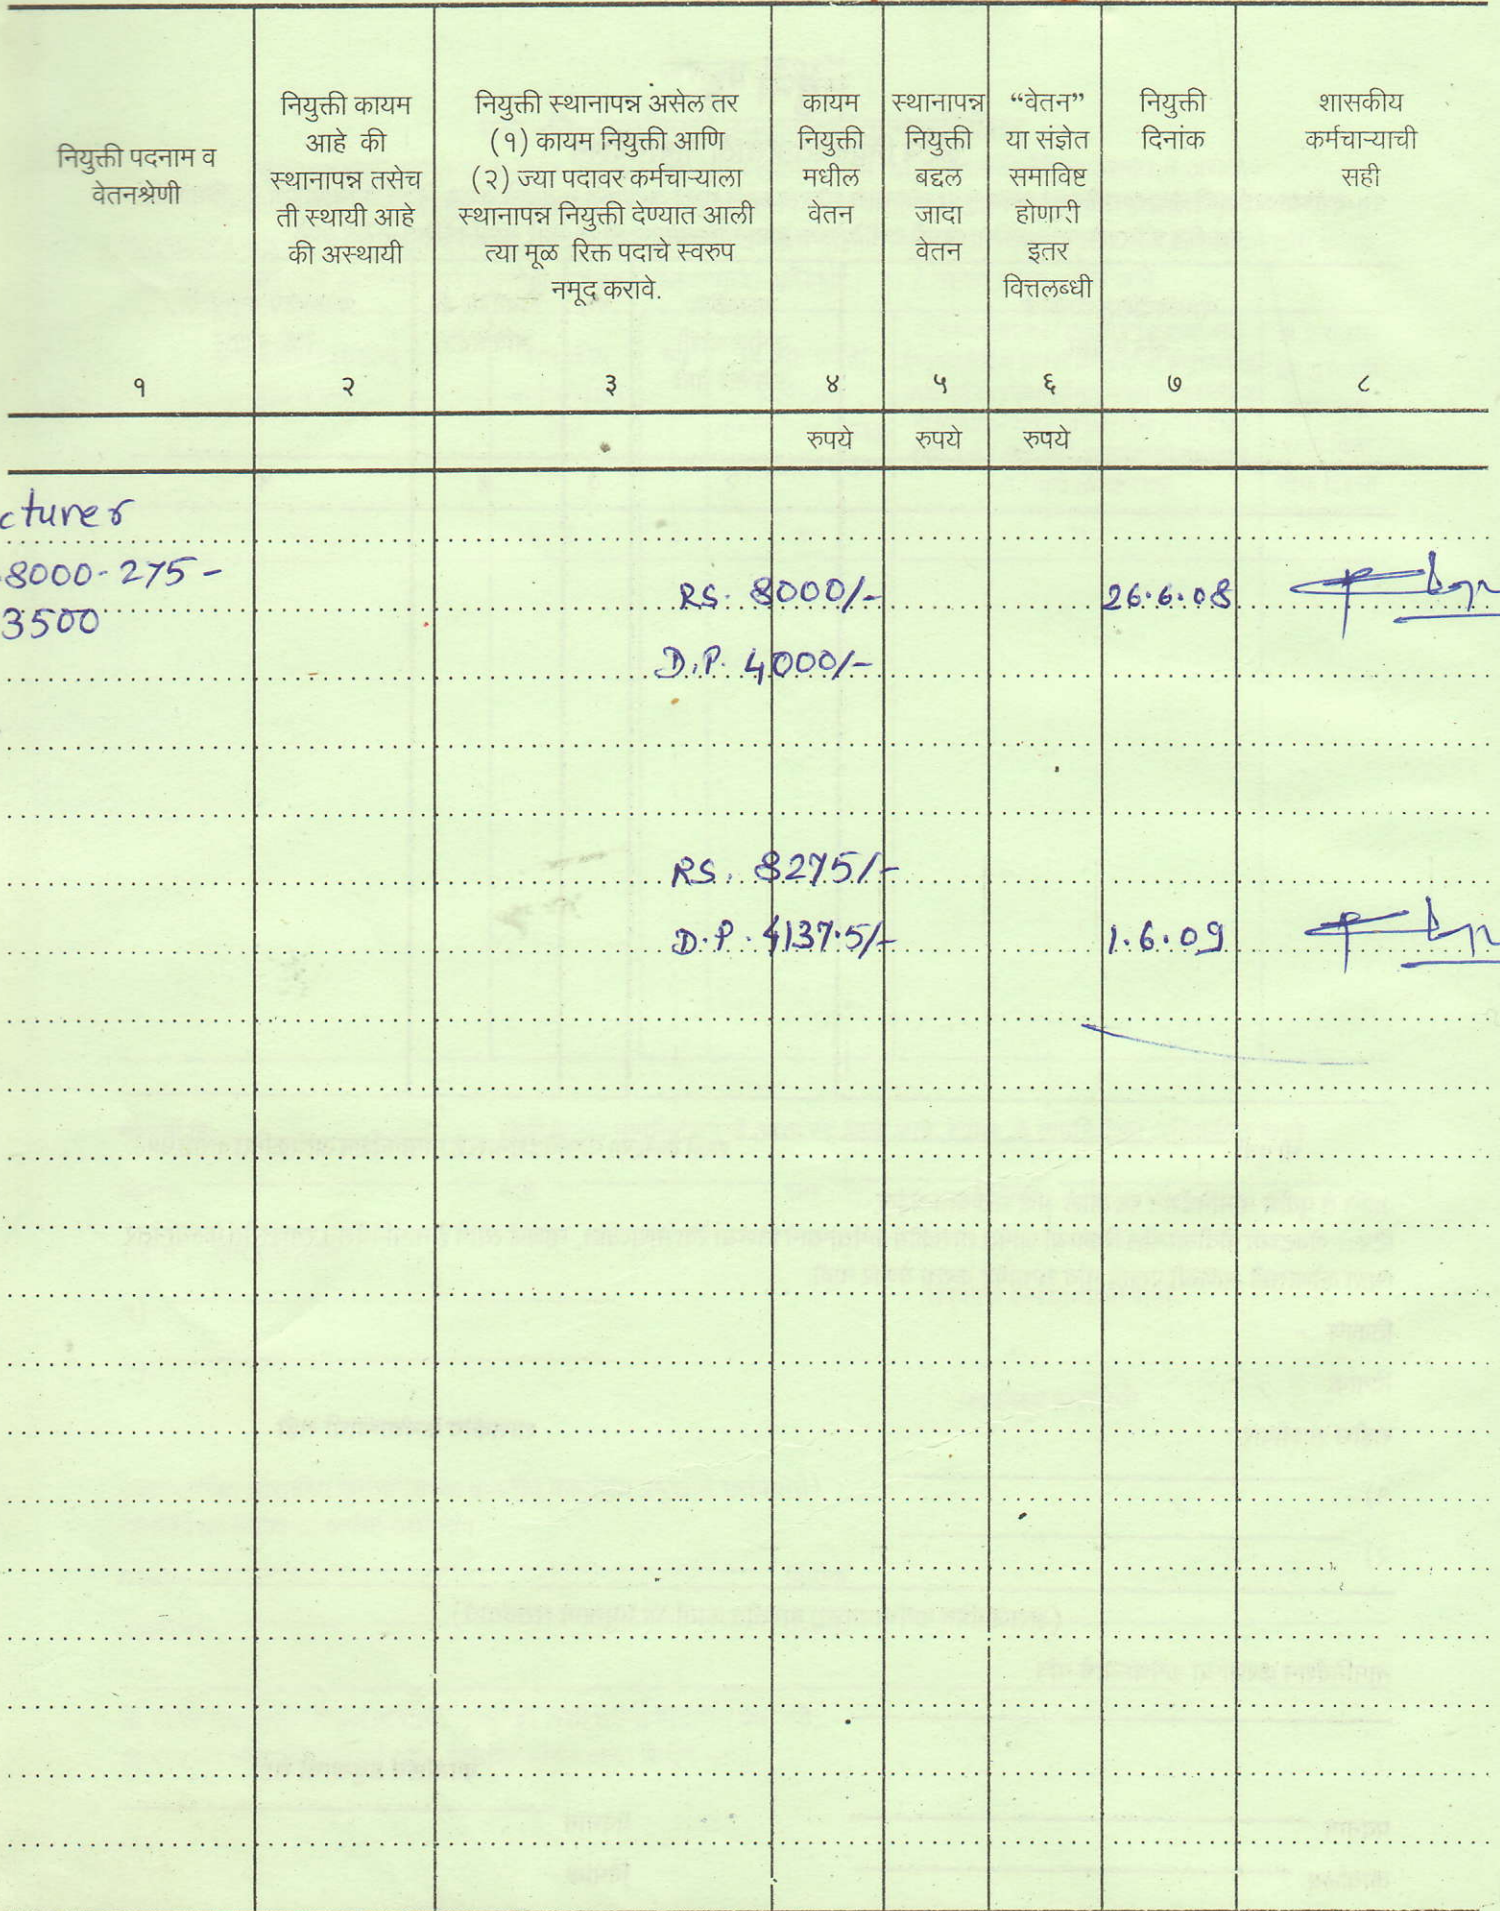 नियुक्ती पदनाम व
वेतनश्रेणी
नियुक्ती कायम
आहे की
स्थानापन्न तसेच
ती स्थायी आहे
की अस्थायी
नियुक्ती स्थानापन्न असेल तर
(१) कायम नियुक्ती आणि
(२) ज्या पदावर कर्मचाऱ्याला
स्थानापन्न नियुक्ती देण्यात आली
त्या मूळ रिक्त पदाचे स्वरुप
नमूद करावे.
कायम
नियुक्ती
मधील
वेतन
स्थानापन्न
नियुक्ती
बद्दल
जादा
वेतन
“वेतन”
या संज्ञेत
समाविष्ट
होणारी
इतर
वित्तलब्धी
नियुक्ती
दिनांक
शासकीय
कर्मचाऱ्याची
सही
१ २ ३ ४ ५ ६ ७ ८
रुपये रुपये रुपये
cturer
8000-275-
3500
RS. 8000/- 26.6.08
D.P. 4000/-
RS. 8275/-
D.P. 4137.5/- 1.6.09